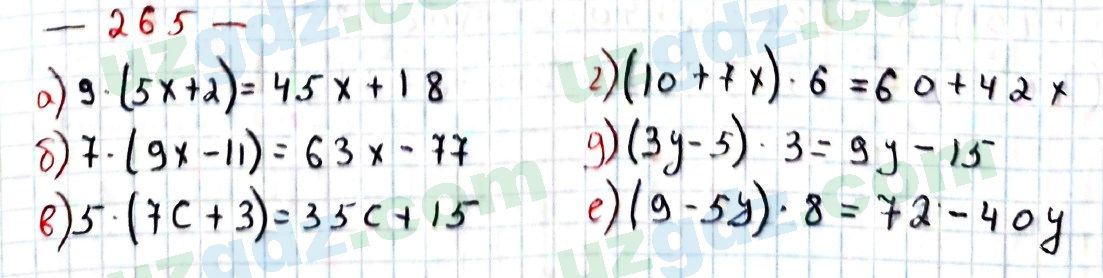 — 265 —
а) 9·(5x+2)=45x+18
б) 7·(9x-11)=63x-77
в) 5·(7c+3)=35c+15
г) (10+7x)·6=60+42x
д) (3y-5)·3=9y-15
е) (9-5y)·8=72-40y
uzgdz.com
uzgdz.com
uzgdz.com
uzgdz.com